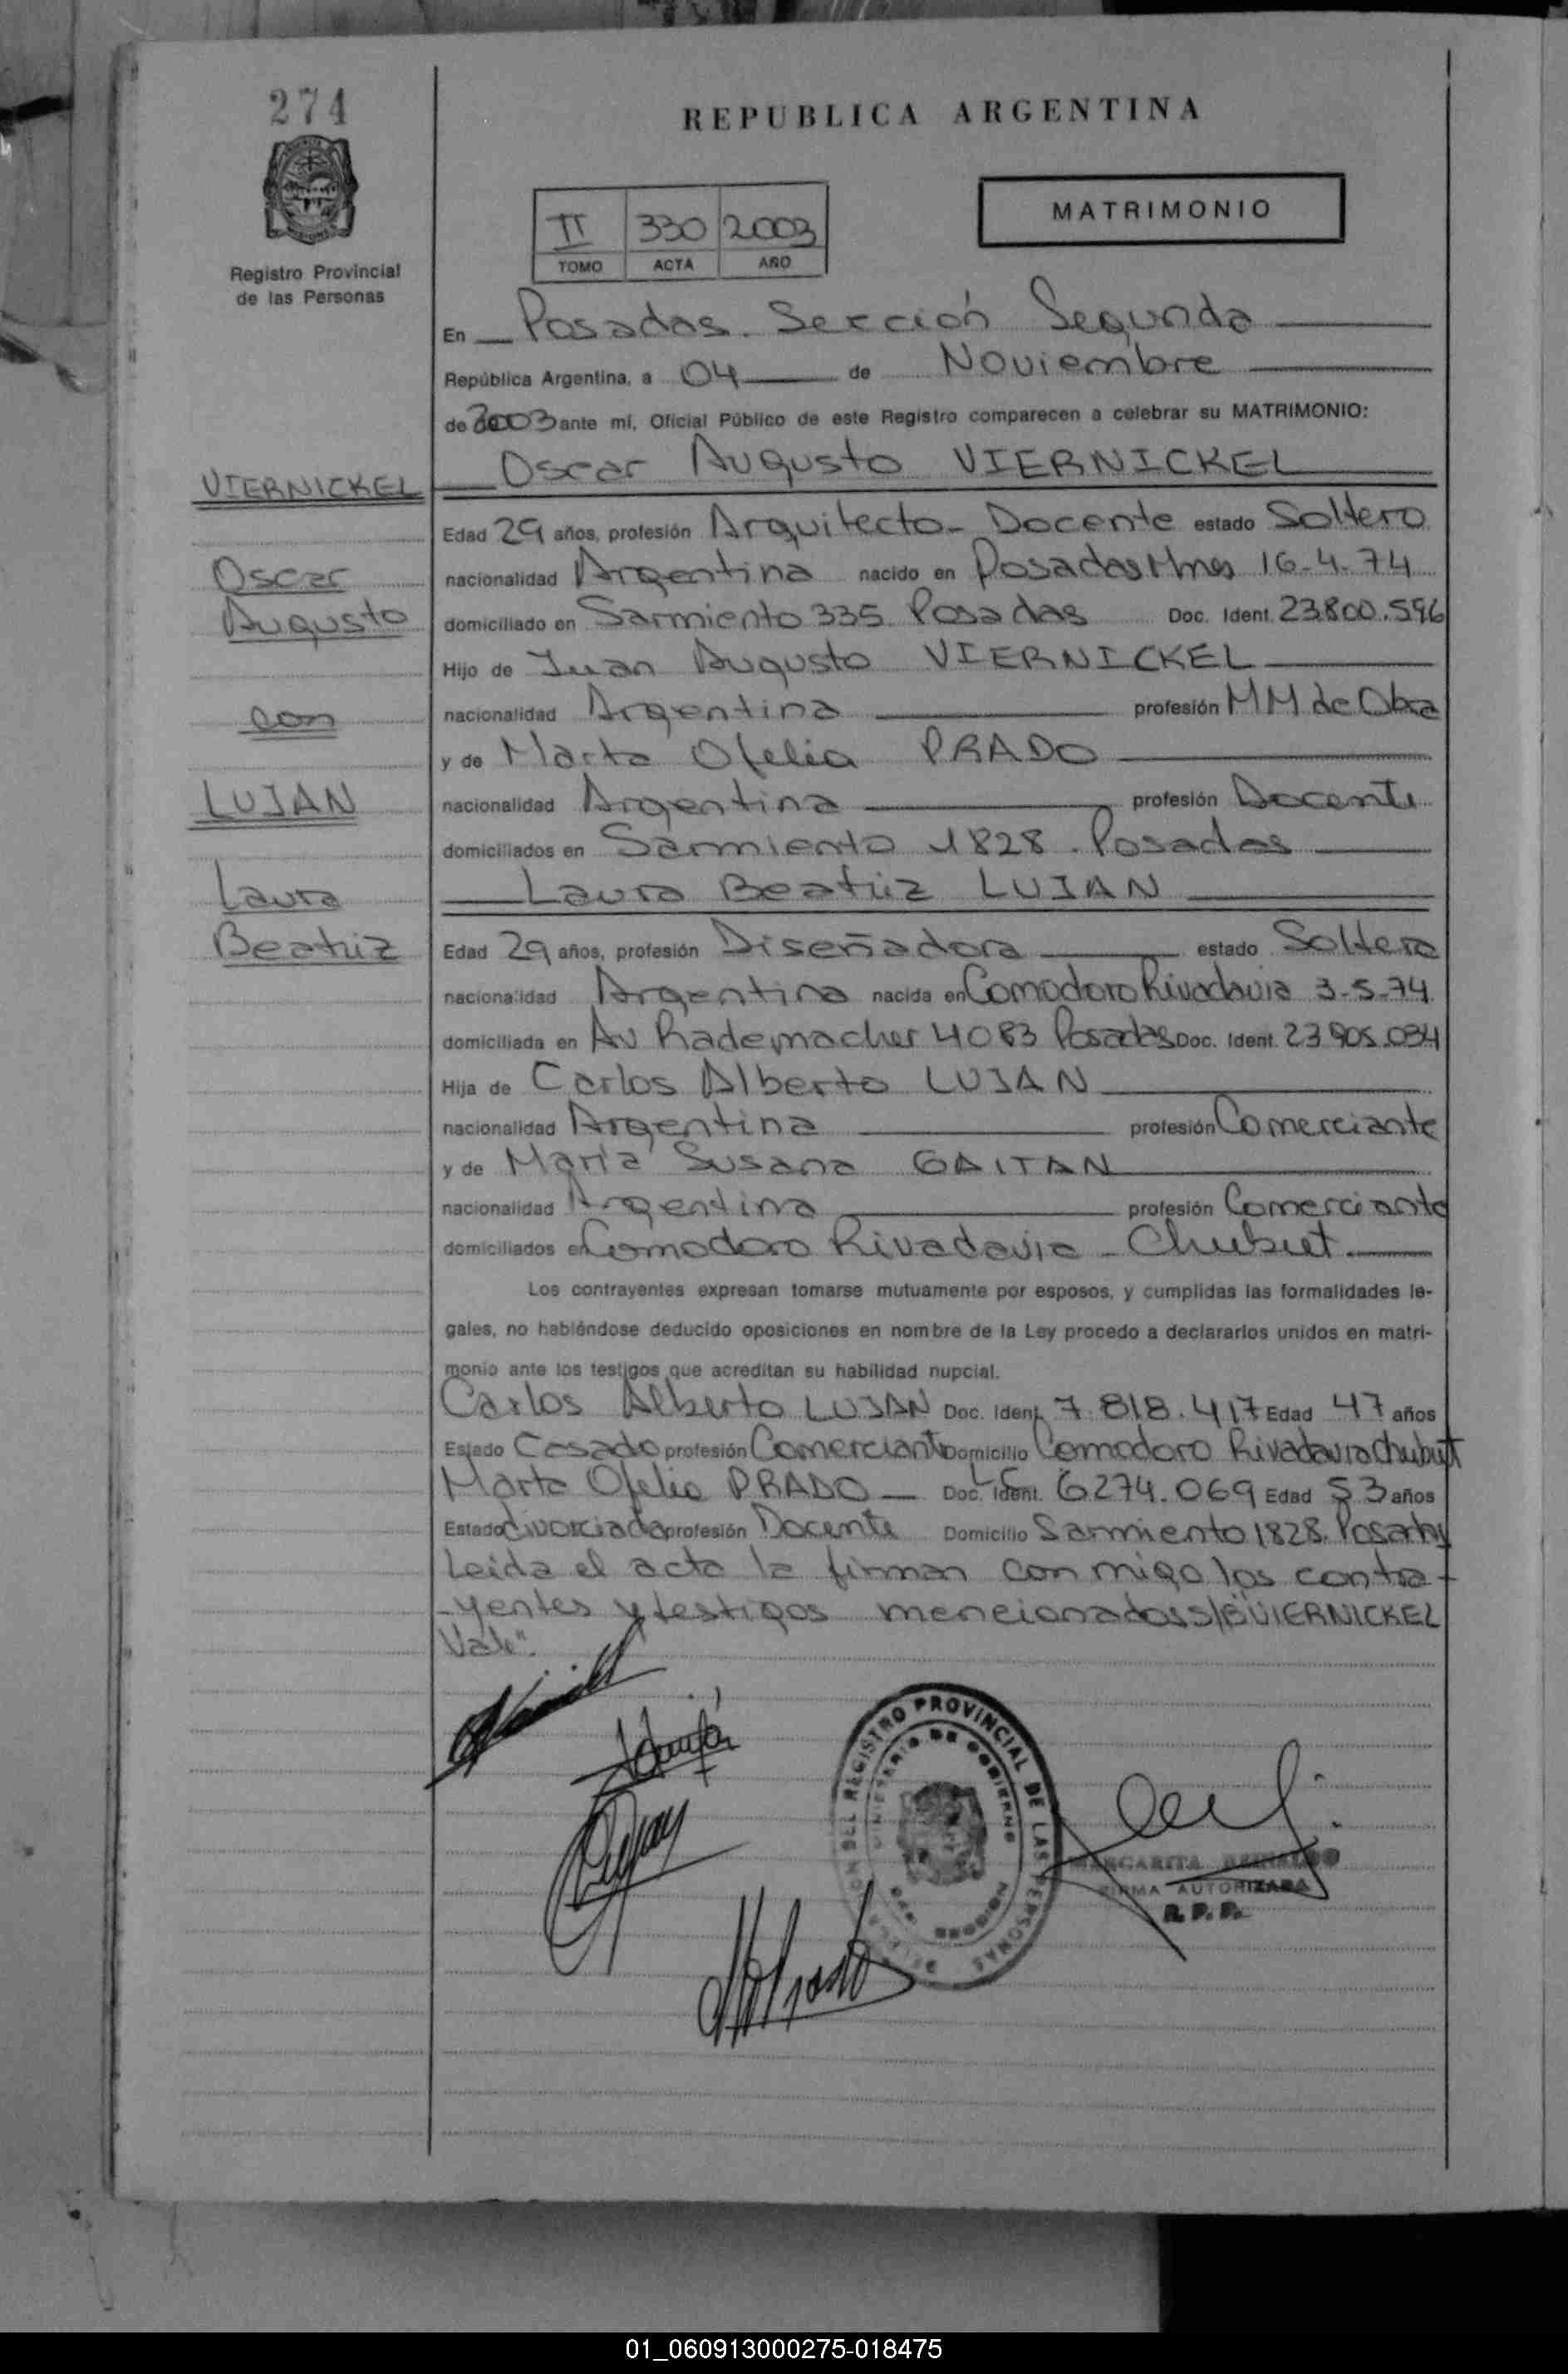 274
REPUBLICA ARGENTINA
MATRIMONIO
II 330 2003
TOMO ACTA AÑO
Registro Provincial
de las Personas
En Posadas. Sección Segunda
República Argentina, a 04 de Noviembre
de 2003 ante mí, Oficial Público de este Registro comparecen a celebrar su MATRIMONIO:
Oscar Augusto VIERNICKEL
VIERNICKEL
Edad 29 años, profesión Arquitecto - Docente estado Soltero
Oscar
nacionalidad Argentina nacido en Posadas Mnes 16-4-74
Augusto
domiciliado en Sarmiento 335 Posadas Doc. Ident. 23.800.596
Hijo de Juan Augusto VIERNICKEL
con
nacionalidad Argentina profesión MM de Obra
y de Marta Ofelia PRADO
LUJAN
nacionalidad Argentina profesión Docente
domiciliados en Sarmiento 1828. Posadas
Laura
Laura Beatriz LUJAN
Beatriz
Edad 29 años, profesión Diseñadora estado Soltera
nacionalidad Argentina nacida en Comodoro Rivadavia 3-5-74
domiciliada en Av Rademacher 4083 Posadas Doc. Ident. 23.905.034
Hija de Carlos Alberto LUJAN
nacionalidad Argentina profesión Comerciante
y de María Susana GAITAN
nacionalidad Argentina profesión Comerciante
domiciliados en Comodoro Rivadavia - Chubut.
Los contrayentes expresan tomarse mutuamente por esposos, y cumplidas las formalidades le-
gales, no habiéndose deducido oposiciones en nombre de la Ley procedo a declararlos unidos en matri-
monio ante los testigos que acreditan su habilidad nupcial.
Carlos Alberto LUJAN Doc. Ident. 7.818.417 Edad 47 años
Estado Casado profesión Comerciante Domicilio Comodoro Rivadavia Chubut
Marta Ofelia PRADO - Doc. Ident. LC 6274.069 Edad 53 años
Estado divorciada profesión Docente Domicilio Sarmiento 1828. Posadas
Leida el acta la firman conmigo los contra-
-yentes y testigos mencionados S/B"VIERNICKEL
Vale".
REGISTRO PROVINCIAL DE LAS PERSONAS
MINISTERIO DE GOBIERNO
MARGARITA
FIRMA AUTORIZADA
R. P. P.
01_060913000275-018475